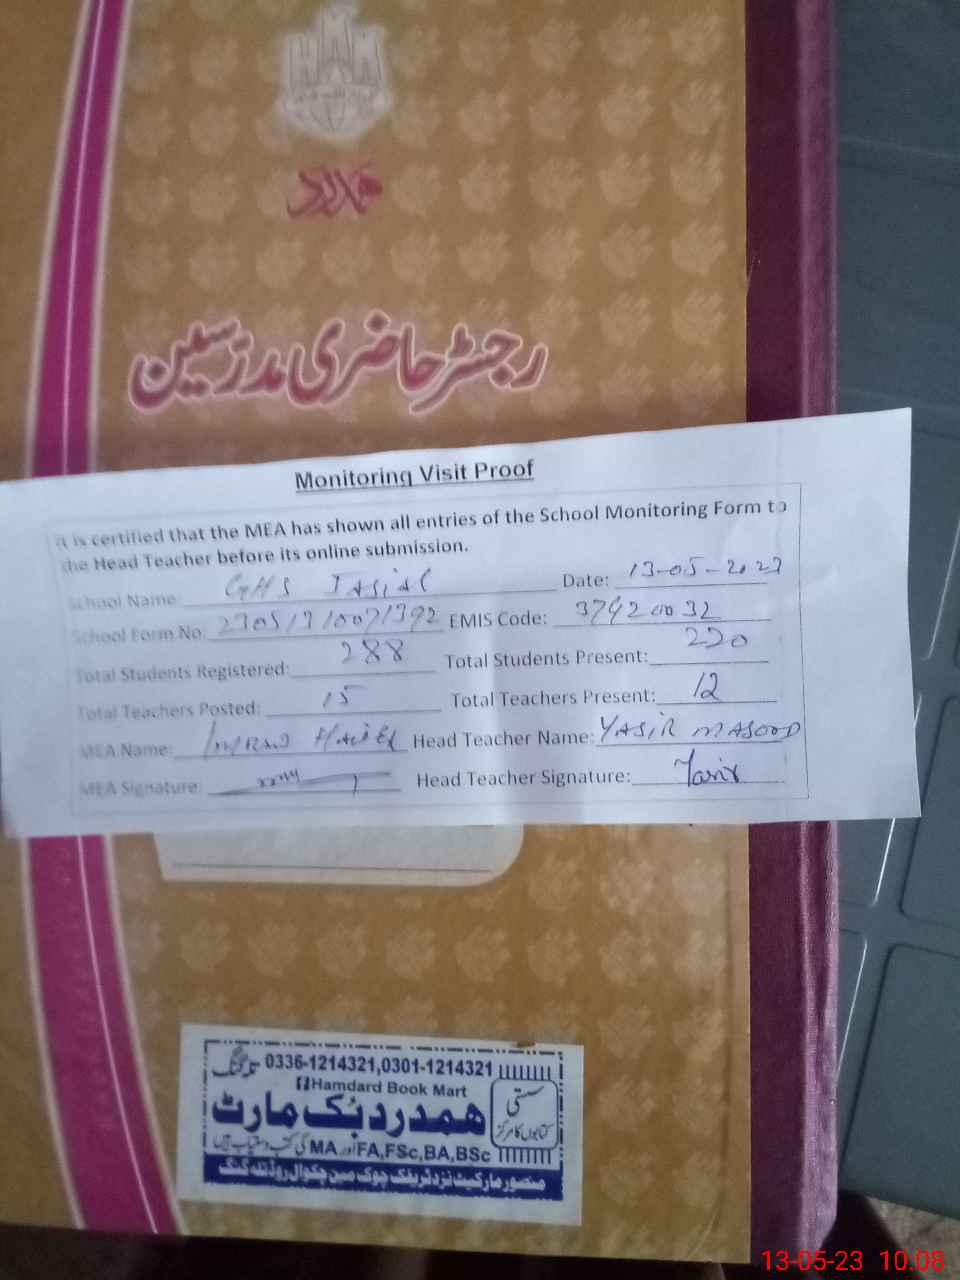 ہمدرد
رجسٹر حاضری مدرسین
Monitoring Visit Proof
It is certified that the MEA has shown all entries of the School Monitoring Form to
the Head Teacher before its online submission.
School Name: GHS JASIAL Date: 13-05-2023
School Form No: EMIS Code: 37920032
Total Students Registered: 288 Total Students Present: 220
Total Teachers Posted: 15 Total Teachers Present: 12
MEA Name: IMRAN Head Teacher Name: YASIR MASOOD
MEA Signature: Head Teacher Signature: Yasir
0336-1214321,0301-1214321 تلہ گنگ
Hamdard Book Mart
ہمدرد بُک مارٹ
سستی
کتابوں کا مرکز
MA اور FA,FSc,BA,BSc کی کتب دستیاب ہیں
منصور مارکیٹ نزد ٹریفک چوک مین چکوال روڈ تلہ گنگ
13-05-23 10:08